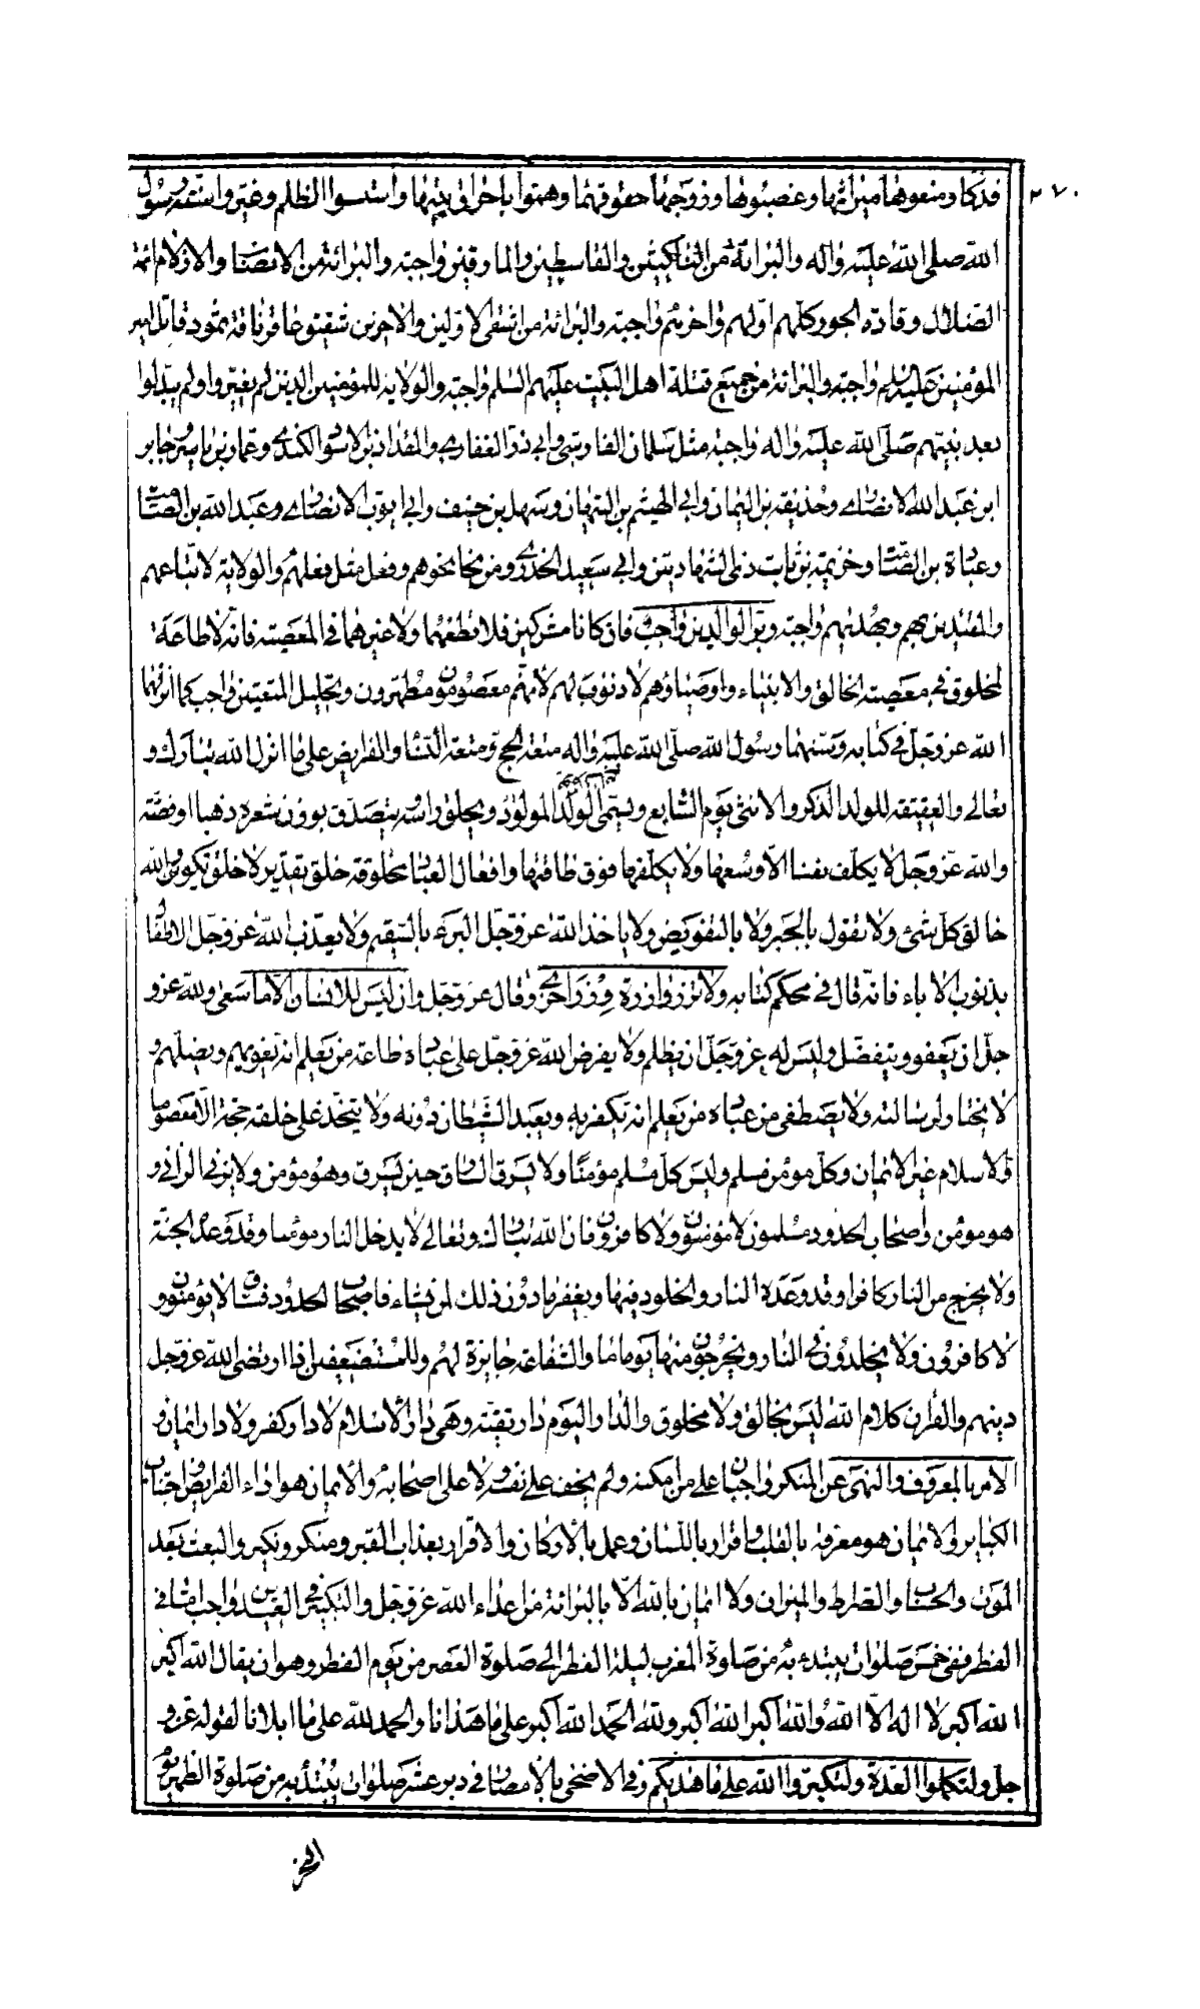 ٢٧٠
فدكا ومنعوها ميراثها وغصبوها وزوجها حقوقهما وهموا باحراق بيتها واسسوا الظلم وغيروا سنة رسول
الله صلى الله عليه واله والبرائة من الناكثين والقاسطين والمارقين واجبة والبرائة من الانصاب والازلام ائمة
الضلال وقادة الجور كلهم اولهم واخرهم واجبة والبرائة من اشقى الاولين والاخرين شقيق عاقر ناقة ثمود قاتل امير
المؤمنين عليه السلم واجبة والبرائة من جميع قتلة اهل البيت عليهم السلم واجبة والولاية للمؤمنين الذين لم يغيروا ولم يبدلوا
بعد نبيهم صلى الله عليه واله واجبة مثل سلمان الفارسي وابي ذر الغفاري والمقداد بن الاسود الكندي وعمار بن ياسر وجابر
ابن عبد الله الانصاري وحذيفة بن اليمان وابي الهيثم بن التيهان وسهل بن حنيف وابي ايوب الانصاري وعبد الله بن الصامت
وعبادة بن الصامت وخزيمة بن ثابت ذي الشهادتين وابي سعيد الخدري ومن نحا نحوهم وفعل مثل فعلهم والولاية لاتباعهم
والمقتدين بهم وبهديهم واجبة وبر الوالدين واجب فان كانا مشركين فلا تطعهما ولا غيرهما في المعصية فانه لا طاعة
لمخلوق في معصية الخالق والانبياء واوصياؤهم لا ذنوب لهم لانهم معصومون مطهرون وتحليل المتعتين واجب كما انزلهما
الله عز وجل في كتابه وسنهما رسول الله صلى الله عليه واله متعة الحج ومتعة النساء والفرايض على ما انزل الله تبارك و
تعالى والعقيقة للولد الذكر والانثى يوم السابع ويسمى الولد المولود ويحلق راسه يتصدق بوزن شعره ذهبا او فضة
والله عز وجل لا يكلف نفسا الا وسعها ولا يكلفها فوق طاقتها وافعال العباد مخلوقة خلق تقدير لا خلق تكوين والله
خالق كل شئ ولا نقول بالجبر ولا بالتفويض ولا ياخذ الله عز وجل البرئ بالسقيم ولا يعذب الله عز وجل الاطفال
بذنوب الاباء فانه قال في محكم كتابه ولا تزر وازرة وزر اخرى وقال عز وجل وان ليس للانسان الا ما سعى ولله عز و
جل ان يعفو ويتفضل وليس له عز وجل ان يظلم ولا يفرض الله عز وجل على عباده طاعة من يعلم انه يغويهم ويضلهم و
لا يختار لرسالته ولا يصطفي من عباده من يعلم انه يكفر به ويعبد الشيطان دونه ولا يتخذ على خلقه حجة الا معصوما
والاسلام غير الايمان وكل مؤمن مسلم وليس كل مسلم مؤمنا ولا يسرق السارق حين يسرق وهو مؤمن ولا يزني الزاني و
هو مؤمن واصحاب الحدود مسلمون لا مؤمنون ولا كافرون فان الله تبارك وتعالى لا يدخل النار مؤمنا وقد وعد الجنة
ولا يخرج من النار كافرا وقد وعده النار والخلود فيها ويغفر ما دون ذلك لمن يشاء فاصحاب الحدود فساق لا مؤمنون و
لا كافرون ولا يخلدون في النار ويخرجون منها يوما ما والشفاعة جايزة لهم وللمستضعفين اذا ارتضى الله عز وجل
دينهم والقران كلام الله ليس بخالق ولا مخلوق والدار اليوم دار تقية وهي دار الاسلام لا دار كفر ولا دار ايمان و
الامر بالمعروف والنهي عن المنكر واجبان على من امكنه ولم يخف على نفسه ولا على اصحابه والايمان هو اداء الفرايض واجتناب
الكباير والايمان هو معرفة بالقلب واقرار باللسان وعمل بالاركان والاقرار بعذاب القبر ومنكر ونكير والبعث بعد
الموت والحساب والصراط والميزان ولا ايمان بالله الا بالبرائة من اعداء الله عز وجل والتكبير في العيدين واجب اما في
الفطر ففي خمس صلوات يبتدء به من صلوة المغرب ليلة الفطر الى صلوة العصر من يوم الفطر وهو ان يقال الله اكبر
الله اكبر لا اله الا الله والله اكبر الله اكبر ولله الحمد الله اكبر على ما هدانا والحمد لله على ما ابلانا لقوله عز و
جل ولتكملوا العدة ولتكبروا الله على ما هديكم وفي الاضحى بالامصار في دبر عشر صلوات يبتدء به من صلوة الظهر يوم
النحر